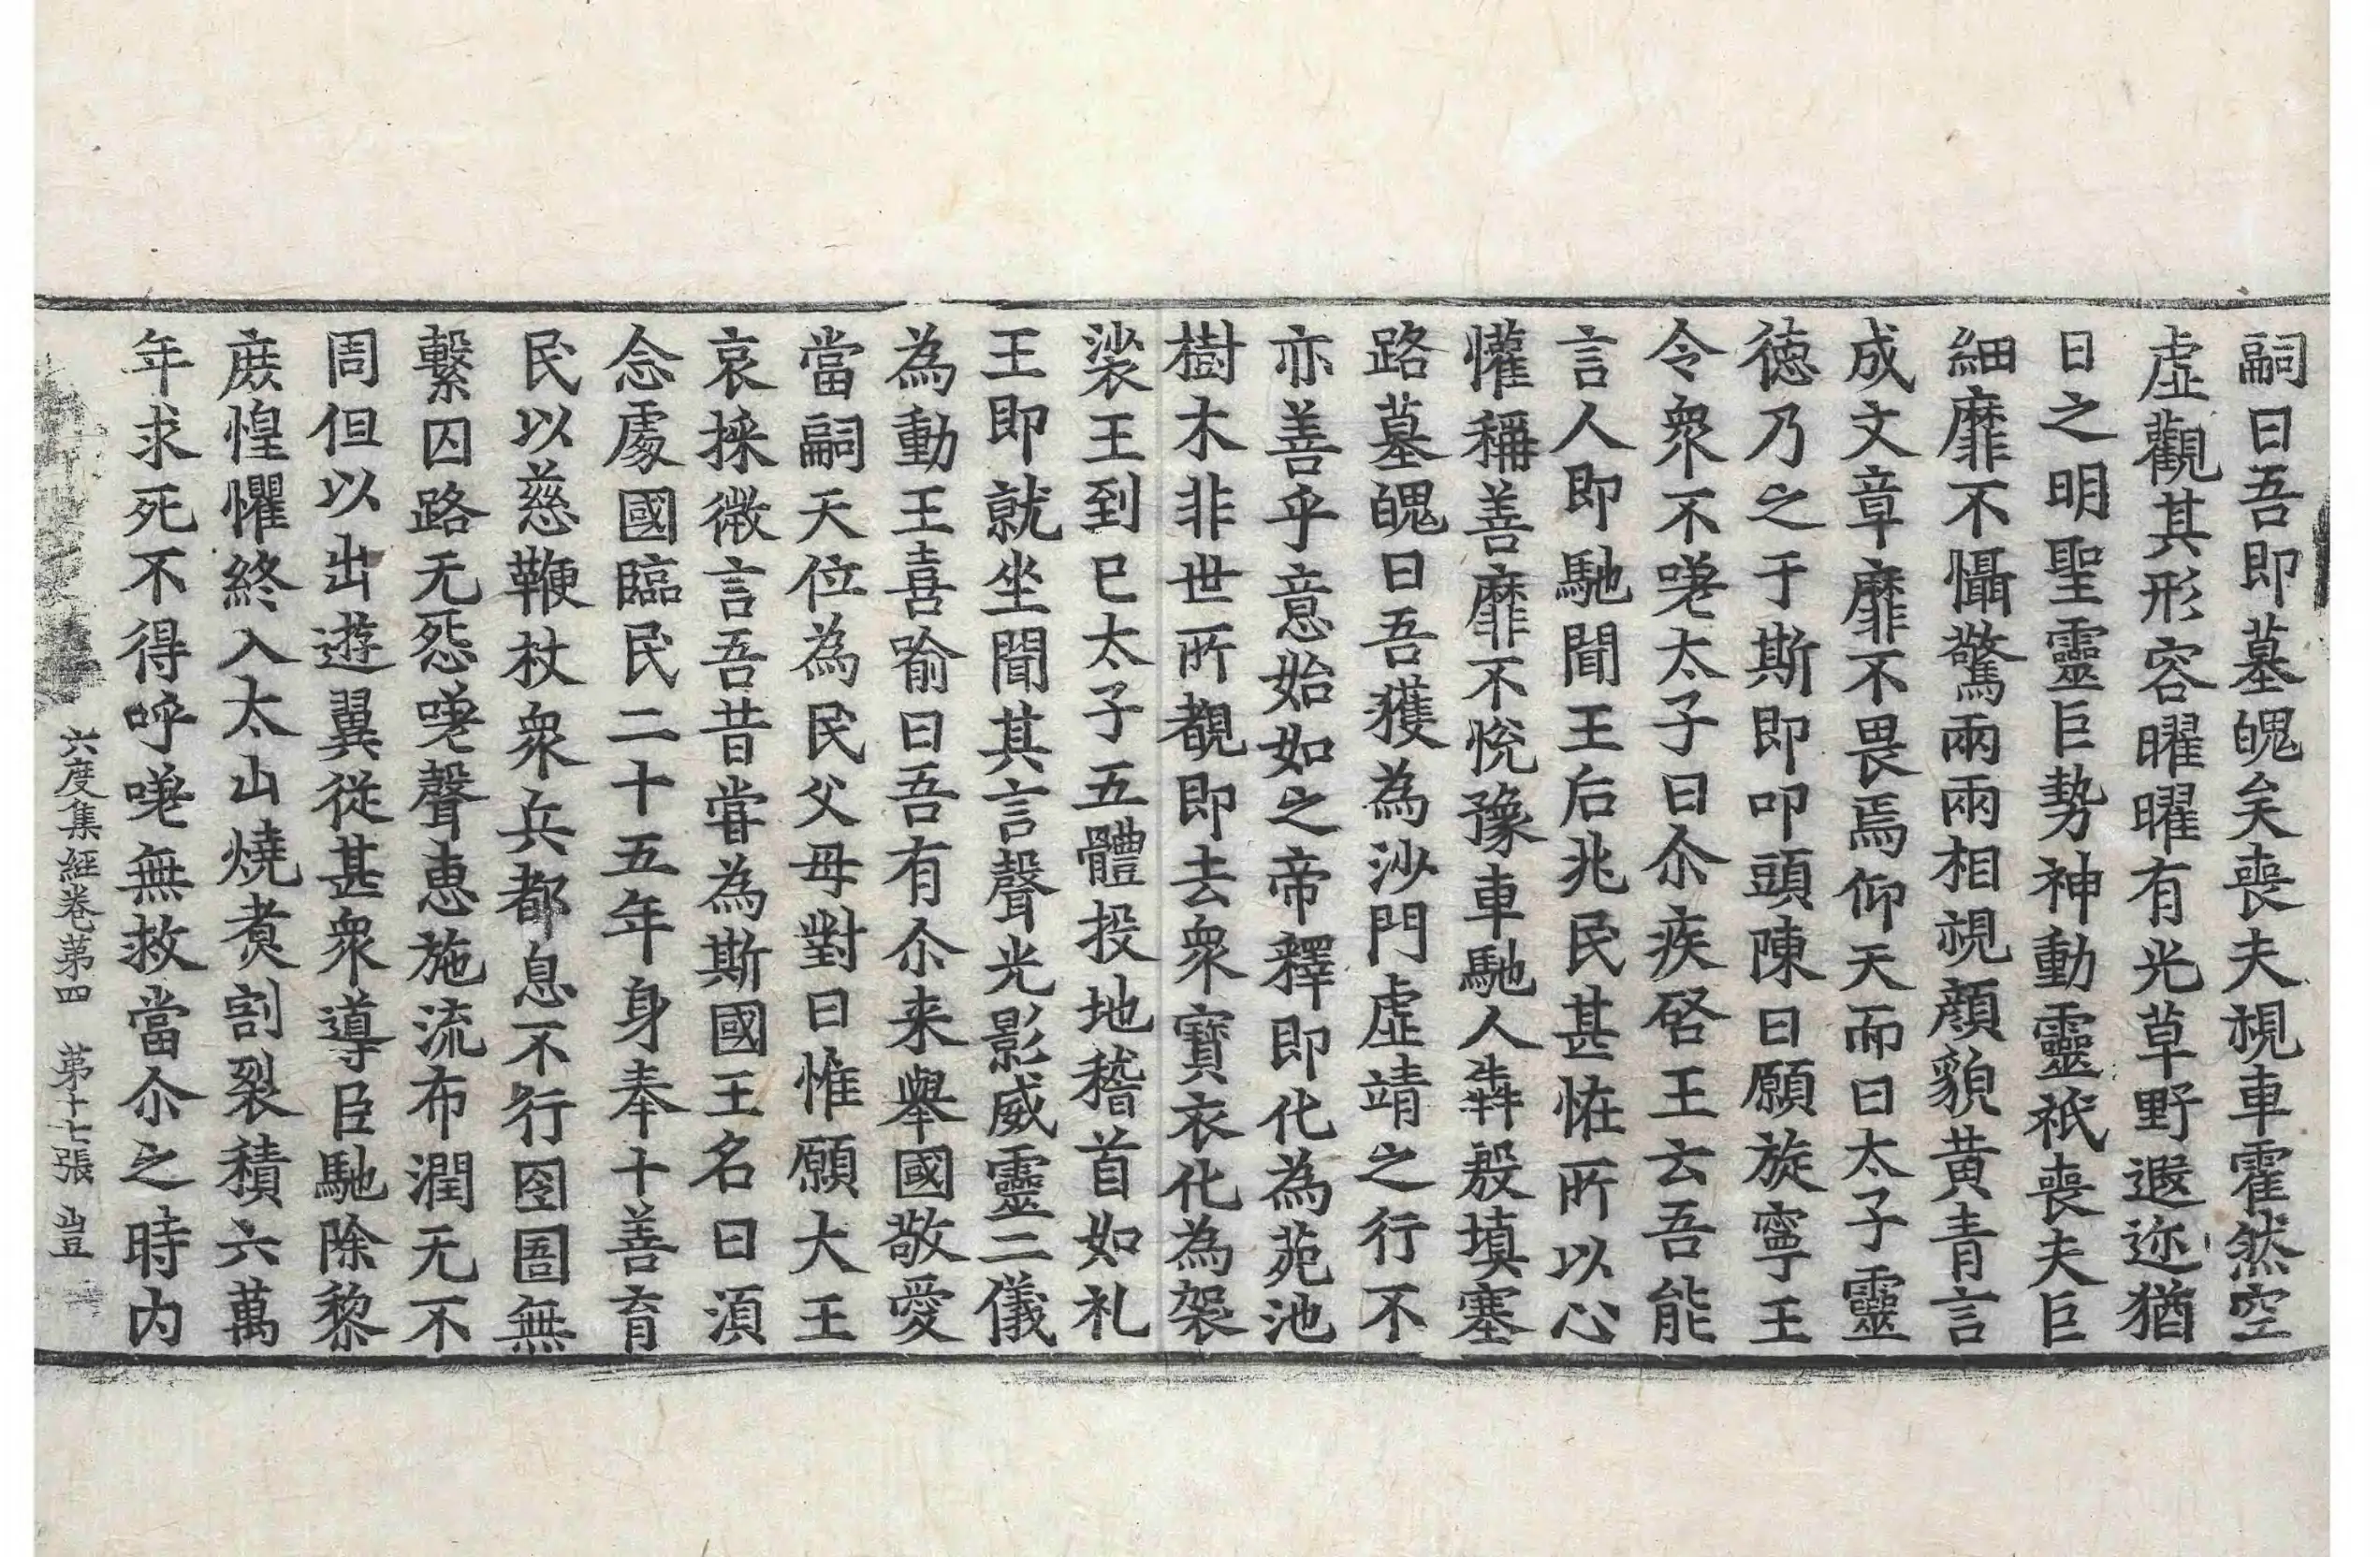 嗣曰吾即墓魄矣喪夫視車霍然空
虛觀其形容曜曜有光草野遐迩猶
日之明聖靈巨勢神動靈祇喪夫巨
細靡不懾驚兩兩相視顏貌黃青言
成文章靡不畏焉仰天而曰太子靈
德乃之于斯即叩頭陳曰願旋寧王
令衆不嗟太子曰尒疾啓王云吾能
言人即馳聞王后兆民甚恠所以心
懽稱善靡不悅豫車馳人犇殷填塞
路墓魄曰吾獲為沙門虛靖之行不
亦善乎意始如之帝釋即化為苑池
樹木非世所覩即去衆寶衣化為袈
裟王到已太子五體投地稽首如礼
王即就坐聞其言聲光影威靈二儀
為動王喜喻曰吾有尒来舉國敬愛
當嗣天位為民父母對曰惟願大王
哀採微言吾昔甞為斯國王名曰湏
念處國臨民二十五年身奉十善育
民以慈鞭杖衆兵都息不行囹圄無
繫囚路无怨嗟聲惠施流布潤无不
周但以出遊翼從甚衆導臣馳除黎
庶惶懼終入太山燒煑割裂積六萬
年求死不得呼嗟無救當尒之時内
六度集經卷第四　第十七張　豈